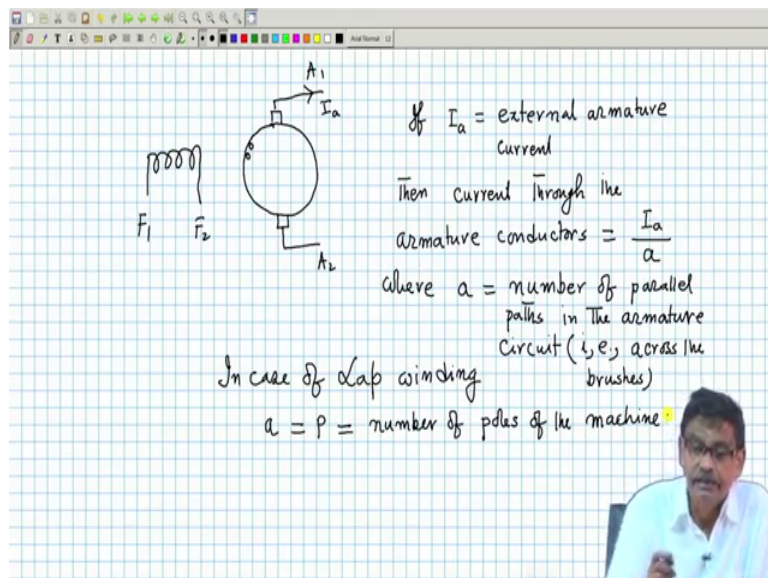 Arial Normal 12
A1
Ia
F1 F2
A2
If Ia = external armature
current
Then current through the
armature conductors = Ia/a
where a = number of parallel
paths in the armature
circuit (i,e., across the
brushes)
In case of Lap winding
a = P = number of poles of the machine